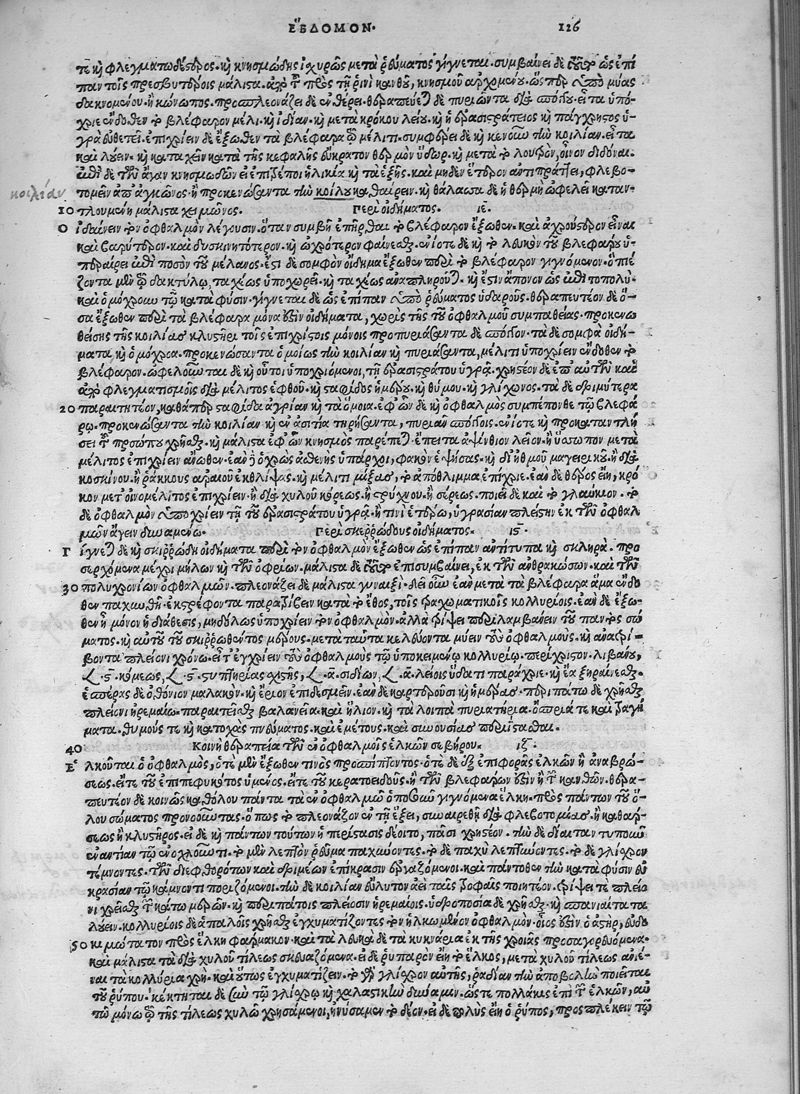 ἝΒΔΟΜΟΝ. 126
τε καὶ φλεγματωδέστερος. καὶ κνησμώδης ἰσχυρῶς μετὰ ῥεύματος γίγνεται. συμβαίνει δὲ τοῦτο ὡς ἐπὶ
παν τοῖς πρεσβυτέροις μάλιστα. πρὸς τῇ ῥινὶ κανθοῦ, κνησμοῦ ἀρχομένου. ὥσπερ ὑπὸ μυίας
δακνομένου. ἢ κώνωπος. προσπλεονάζει δὲ ἐν θέρει. θεραπεύεται δὲ πυριῶντα διὰ σπόγγου. εἶτα ὑπό-
χριε ἔνδοθεν τὸ βλέφαρον μέλι. καὶ ἰδίαν. καὶ μετὰ κρόκου λείου. καὶ ὁ ἐρασιστράτειος καὶ πάγχρηστος ὑ-
γρὰ ἐπιχρίειν δὲ ἔξωθεν τὰ βλέφαρα τῷ μέλιτι. συμφέρει δὲ καὶ κενοῦν τὴν κοιλίαν. εἶτα
καὶ λούειν. καὶ καταχεῖν κατὰ τῆς κεφαλῆς εὔκρατον θερμὸν ὕδωρ. καὶ μετὰ τὸ λουτρὸν, οἶνον διδόναι.
ἐπὶ δὲ τῶν ἄγαν κνησμωδῶν εἰ ἐπιτρέποι ἡλικία καὶ τὰ ἑξῆς. καὶ μηδὲν ἕτερον ἀντιπράττει, φλεβο-
τομεῖν ἀπ' ἀγκῶνος. ἢ προκενώσαντα τὴν κοιλίαν καθαίρειν. καὶ θάλασσα δὲ ἡ θερμὴ ὠφελεῖ καταν-
κοιλίαν
10 τλουμένη μάλιστα χειμῶνος. Περὶ οἰδήματος. ιε.
Ο ἰδαίνειν τὸν ὀφθαλμὸν λέγουσιν. ὅταν συμβῇ ἐπῆρθαι τὸ βλέφαρον ἔξωθεν. καὶ ἀχρούστερον εἶναι
καὶ βαρύτερον. καὶ δυσκινητότερον. καὶ ὠχρότερον φαίνεσθαι. ἐνίοτε δὲ καὶ τὸ λευκὸν τοῦ βλεφάρου ὑ-
περαίρει ἐπὶ ποσὸν τοῦ μέλανος. ἔστι δὲ σομφὸν οἴδημα ἔξωθεν περὶ τὸ βλέφαρον γινόμενον. ὃ πιέ-
ζονται μὲν τῷ δακτύλῳ, ταχέως ὑποχωρεῖ. καὶ ταχέως ἀναπληροῦται. καὶ ἔστιν ἄπονον ὡς ἐπὶ τὸ πολύ.
καὶ ὁμόχρουν τῷ κατὰ φύσιν. γίγνεται δὲ ὡς ἐπίπαν ὑπὸ ῥεύματος ὑδαροῦς. θεραπευτέον δὲ ὅ-
σα ἔξωθεν περὶ τὰ βλέφαρα μόνα οἰδήματα, χωρὶς τῆς τοῦ ὀφθαλμοῦ συμπαθείας. προκενω-
θείσης τῆς κοιλίας κλυστῆρι τοῖς ἐπιχρίστοις μόνοις προπυριάσαντα δὲ σπόγγον. τὰ δὲ σομφὰ οἰδή-
ματα, καὶ ὁμόχροα. προκενώσαντα ὁμοίως τὴν κοιλίαν καὶ πυριάσαντα, μέλιτι ὑποχρίειν ἔνδοθεν τὸ
βλέφαρον. ὠφελοῦνται δὲ καὶ οὗτοι ὑποχριόμενοι, τῇ ἐρασιστράτου ὑγρᾷ. χρηστέον δὲ ἐπ' αὐτῶν καὶ
ἀποφλεγματισμοῖς διὰ μέλιτος ἑφθοῦ. καὶ σταφίδος ἡμέρου. καὶ θύμου. καὶ γλίχωνος. τὰ δὲ δριμύτερα
20 παραιτητέον, καθάπερ σταφίδα ἀγρίαν καὶ τὰ ὅμοια. ἐφ' ὧν δὲ καὶ ὁ ὀφθαλμὸς συμπέπονθε τῷ βλεφά-
ρῳ. προκενώσαντα τὴν κοιλίαν καὶ ἐν ἀσιτίᾳ τηρήσαντα, πυριᾶν σπόγγοις. ἐνίοτε καὶ προκαταντλή-
σει τοῦ προσώπου χρῆσθαι. καὶ μάλιστα ἐφ' ὧν κνησμὸς παρέπεται. ἔπειτα ἀψίνθιον λεῖον. ἢ ὕσσωπον μετὰ
μέλιτος ἐπιχρίειν ἄνωθεν. ἐὰν δὲ ὀχρῶς ἀσθενὴς ὑπάρχῃ, φακὸν ἑψήσας. καὶ δι' ἠθμοῦ μαγειρικοῦ. ἢ διὰ
κοσκίνου. ἢ ῥάκκους ἀραιοῦ ἐκθλίψας. καὶ μέλιτι μίξας, τὸ ἀπόθλιμμα ἐπίχριε. ἐὰν δὲ θερὸς εἴη, κρό-
κον μετ' οἰνομέλιτος ἐπιχρίειν. ἢ διὰ χυλοῦ κόρεως. ἢ στρύχνου. ἢ σέρεως. ποιεῖ δὲ καὶ τὸ γλαύκιον. τὸν
δὲ ὀφθαλμὸν ὑποχρίειν τῇ τοῦ ἐρασιστράτου ὑγρᾷ. ἤ τινι ἑτέρῳ, ὑγρασίαν πλείστην ἐκ τῶν ὀφθαλ-
μῶν ἄγειν δυναμένῳ. Περὶ σκιρρώδους οἰδήματος. ις.
Γ ίγνεται δὲ καὶ σκιρρώδη οἰδήματα περὶ τὸν ὀφθαλμὸν ἔξωθεν ὡς ἐπίπαν ἀντίτυπα καὶ σκληρά. προ
σερχόμενα μέχρι μήλων καὶ τῶν ὀφρύων. μάλιστα δὲ τοῦτο ἐπισυμβαίνει, ἐκ τῶν ἀνθρακώσεων. καὶ τῶν
30 πολυχρονίων ὀφθαλμιῶν. πλεονάζει δὲ μάλιστα γυναιξί. δεῖ οὖν ἐὰν μετὰ τὰ βλέφαρα ἅμα ἔνδο-
θεν παχυνθῇ. ἐκστρέφοντα παρατρίβειν κατὰ τὸ ἔθος, τοῖς τραχωματικοῖς κολλυρίοις. ἐὰν δὲ ἔξω-
θεν ᾖ μόνον ἡ διάθεσις, μηδόλως ὑποχρίειν τὸν ὀφθαλμὸν. ἀλλὰ τρίψει περιλαμβάνειν τοῦ παντὸς σώ-
ματος. καὶ αὐτοῦ τοῦ σκιρρωθέντος μέρους. μετὰ ταῦτα κελεύοντα μύειν τοὺς ὀφθαλμοὺς. καὶ ἀνατρί-
βοντα πλείονι χρόνῳ. εἶτ' ἐγχρίειν τοὺς ὀφθαλμοὺς τῷ ὑποκειμένῳ κολλυρίῳ. περίχριστον. λιβάνου,
κόμεως, στυπτηρίας σχιστῆς, σιδίων, λείοις ὕδατι παράχριε. καὶ ἔα ξηραίνεσθαι.
ἑσπέρας δὲ ὀθόνιον μαλακὸν. καὶ ἔριον ἐπιδεσμεῖν. ἐὰν δὲ καρτεροῦσι καὶ ἡμέρας. περιπάτῳ δὲ χρῆσθαι
πλείονι ἠρεμαίῳ. παραιτεῖσθαι βαλανεῖα. καὶ ἥλιον. καὶ τὰ λοιπὰ πυριατήρια. ὀσπριά τε καὶ τραγή-
ματα. θυμούς τε καὶ κατοχὰς πνεύματος. καὶ ἐμέτους. καὶ συνουσίας περιίστασθαι.
40 Κοινὴ θεραπεία τῶν ἐν ὀφθαλμοῖς ἑλκῶν σεβήρου. ιζ.
Ε λκοῦται ὁ ὀφθαλμὸς, ὁτὲ μὲν ἔξωθέν τινος προσπίπτοντος. ὁτὲ δὲ ἐξ ἐπιφορᾶς ἑλκῶν ἢ ἀναβρώ-
σεως. εἴτε τοῦ ἐπιπεφυκότος ὑμένος. εἴτε τοῦ κερατοειδοῦς. ἢ τῶν βλεφάρων ἢ τῶν κανθῶν. θερα-
πευτέον δὲ κοινῶς καθόλου πάντα τὰ ἐν ὀφθαλμῷ ὁπωσοῦν γιγνόμενα ἕλκη. πρὸ πάντων τοῦ ὅ-
λου σώματος προνοοῦντας. ὅπως τὸ πλεονάζον ἐν τῇ ἕξει, συναιρεθῇ διὰ φλεβοτομίας. ἢ καθάρ-
σεως ἢ κλυστῆρος. εἰ δὲ καὶ πάντων τούτων ἡ περίστασις δέοιτο, πᾶσι χρηστέον. τὴν δὲ δίαιταν τυποῦν
ἐναντίαν τῷ ἐνοχλοῦντι. τὸ μὲν λεπτὸν ῥεῦμα παχύνοντες. τὸ δὲ παχὺ λεπτύνοντες. τὸ δὲ γλίσχρον
τέμνοντες. τῶν διεφθορότων καὶ δριμέων ἐπίκρασιν ἐργαζόμενοι. καὶ πάντοθεν τὴν κατὰ φύσιν εὐ
κρασίαν τῷ κάμνοντι ποριζόμενοι. τὴν δὲ κοιλίαν εὔλυτον ἀεὶ ταῖς τροφαῖς ποιητέον. τρίψει τε πλείο
νι χρῆσθαι τῶν κάτω μερῶν. καὶ περιπάτοις πλείοσιν ἠρεμαίοις. ὑδροποσίᾳ δὲ χρῆσθαι. καὶ σπανιαίτατα
λούειν. κολλυρίοις δὲ ἁπαλοῖς χρῆσθαι ἐγχυματίζοντες τὸν ἡλκωμένον ὀφθαλμὸν. οἷός ἐστιν ὁ ἀστὴρ, εὐδο
50 κιμώτατον πρὸς ἕλκη φάρμακον. καὶ τὰ λευκὰ δὲ τὰ κυκνάρια ἐκ τῆς χροιᾶς προσαγορευόμενα.
καὶ μάλιστα τὰ διὰ χυλοῦ τήλεως σκευαζόμενα. εἰ δὲ ῥυπαρὸν εἴη τὸ ἕλκος, μετὰ χυλοῦ τήλεως ἀνιέ-
ναι τὰ κολλύρια χρὴ. καὶ οὕτως ἐγχυματίζειν. τὸ γὰρ γλίσχρον αὐτῆς, ῥᾳδίαν τὴν ἀποβολὴν ποιεῖται
τοῦ ῥύπου. κέκτηται δὲ σὺν τῷ γλίσχρῳ καὶ χαλαστικὴν δύναμιν. ὥστε πολλάκις ἐπὶ τῶν ἑλκῶν, αὐ
τῷ μόνῳ τῷ τῆς τήλεως χυλῷ χρησάμενοι, ἠνύσαμεν τὸ δέον. εἰ δὲ πολὺς εἴη ὁ ῥύπος, προσπλέκειν τῷ